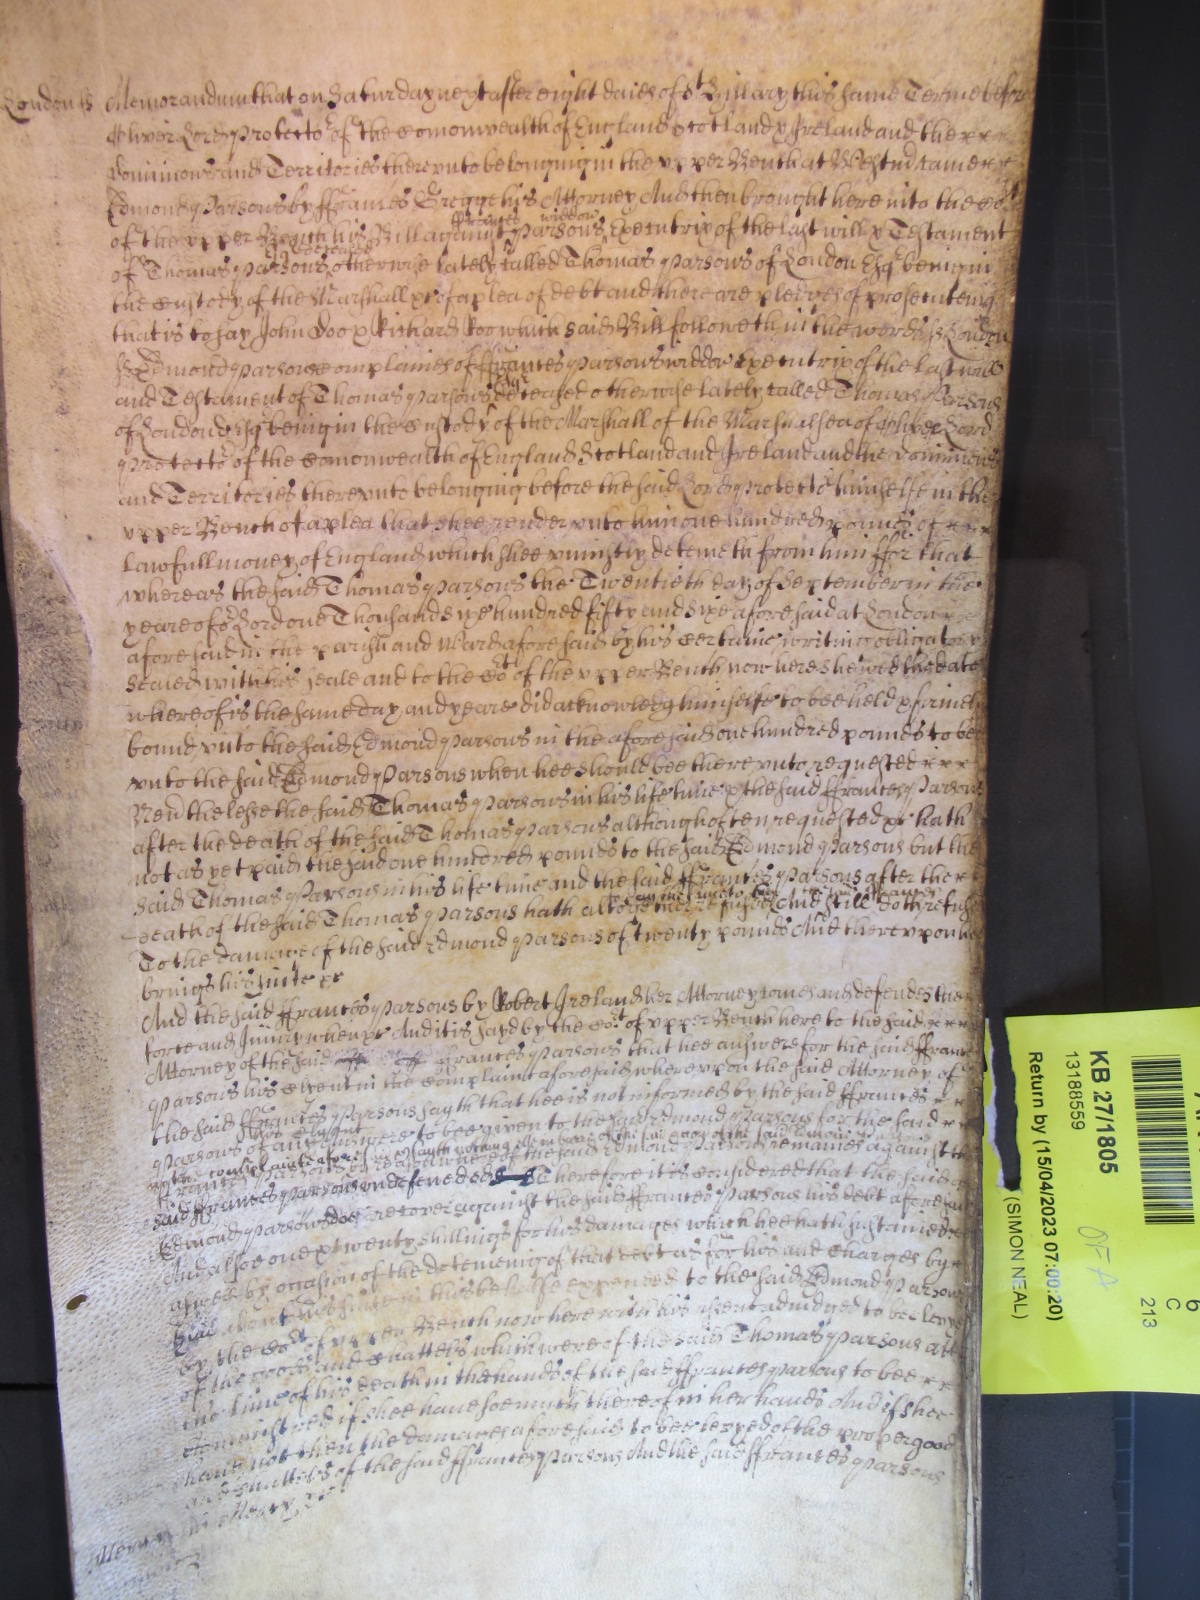 London ss Memorandum that on Saturday next after eight daies of St Hillary this same Terme before
Oliver Lord Protector of the Comonwealth of England Scotland & Ireland and the
Dominions and Territories thereunto belonging in the upper Bench at Westmr came
Edmond Parsons by ffrancis Gregge his Attorney And then brought here into the Cot
of the upper Bench his Bill against Parsons Executrix of the last will & Testament
ffrances widdow
of Thomas Parsons otherwise lately called Thomas Parsons of London Esqr being in
deceased
the Custody of the Marshall &c of a plea of debt and there are pledges of prosecuteing
that is to say John Doo & Richard Roo which said Bill followeth in these words ss London
ss Edmond Parsons complaines of ffrances Parsons widdow Executrix of the last will
and Testament of Thomas Parsons deceased otherwise lately called Thomas Parsons
of London Esq being in the Custody of the Marshall of the Marshalsea of Oliver Lord
Protector of the Comonwealth of England Scotland and Ireland and the Dominions
and Territories thereunto belonging before the said Lord Protector himselfe in the
upper Bench of a plea that shee render unto him one hundred pounds of
lawfull money of England which shee uniustly deteineth from him ffor that
whereas the said Thomas Parsons the Twentieth day of September in the
yeare of or Lord one Thousand six hundred fifty and six aforesaid at London
aforesaid in the parish and Ward aforesaid by his certaine writing obligatory
sealed with his seale and to the Cot of the upper Bench now here shewed the date
whereof is the same day and yeare did acknowledg himselfe to bee held & firmely
bound unto the said Edmond Parsons in the aforesaid one hundred pounds to bee
unto the said Edmond Parsons when hee should bee thereunto requested
Neverthelesse the said Thomas Parsons in his life time & the said ffrances Parsons
after the death of the said Thomas Parsons although often requested &c hath
not as yet paid the said one hundred pounds to the said Edmond Parsons but the
said Thomas Parsons in his life time and the said ffrances Parsons after the
death of the said Thomas Parsons hath altogether refused And still doth refuse
To the damage of the said Edmond Parsons of twenty pounds And thereupon hee
brings his suite &c
And the said ffrances Parsons by Robert Ireland her Attorney comes and defendes the
force and Iniury when &c And it is sayd by the Cot of upper Bench here to the said
Attorney of the said ffrances Parsons that hee answere for the said ffrances
Parsons his Clyent in the Complaint aforesaid whereupon the said Attorney of
the said ffrances Parsons sayth that hee is not informed by the said ffrances
Parsons his Clyent
of any answere to bee given to the said Edmond Parsons for the said
ffrances Parsons in the complaint aforesaid
by reason whereof the said Edmond Parsons remaines against the
said ffrances Parsons undefended Therefore it is considered that the said
Edmond Parsons doe recover against the said ffrances Parsons his debt aforesaid
And alsoe one & twenty shillings for his damages which hee hath sustained
aswell by occasion of the deteineing of that debt as for his and Charges by
him about his suite in this behalfe expended to the said Edmond Parsons
by the Cot of upper Bench now here with his assent adiudged to bee levyed
of the goods and Chattels which were of the said Thomas Parsons att
the time of his death in the hands of the said ffrances Parsons to bee
administred if shee have soe much thereof in her hands And if shee
have not then the damages aforesaid to bee levyed of the proper goods
and Chattels of the said ffrances Parsons And the said ffrances Parsons
in Mercy &c
KB 27/1805
13188559
Return by (15/04/2023 07:00:20)
(SIMON NEAL)
OFA
6
C
213